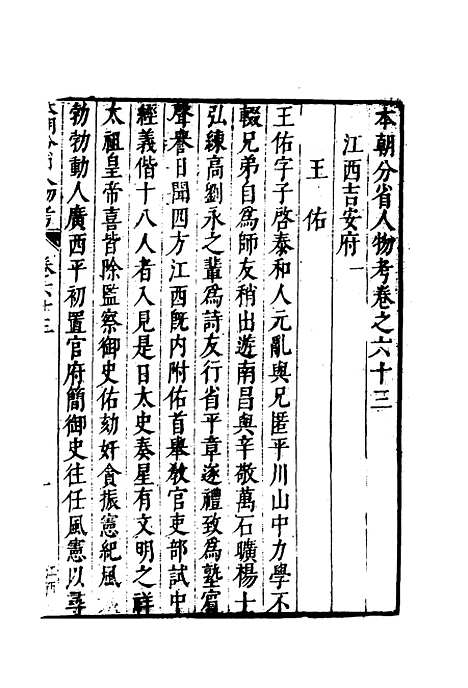 本朝分省人物考卷之六十三
江西吉安府一
王佑
王佑字子啓泰和人元亂與兄匿平川山中力學不
輟兄弟自爲師友稍出遊南昌與辛敬萬石曠楊士
弘練高劉永之輩爲詩友行省平章遂禮致爲塾賓
聲譽日聞四方江西旣内附佑首舉敎官吏部試中
經義偕十八人者入見是日太史奏星有文明之祥
太祖皇帝喜皆除監察御史佑劾奸貪振憲紀風
勃勃動人廣西平初置官府簡御史往任風憲以尋
本朝分省人物考
卷六十三
一
江西